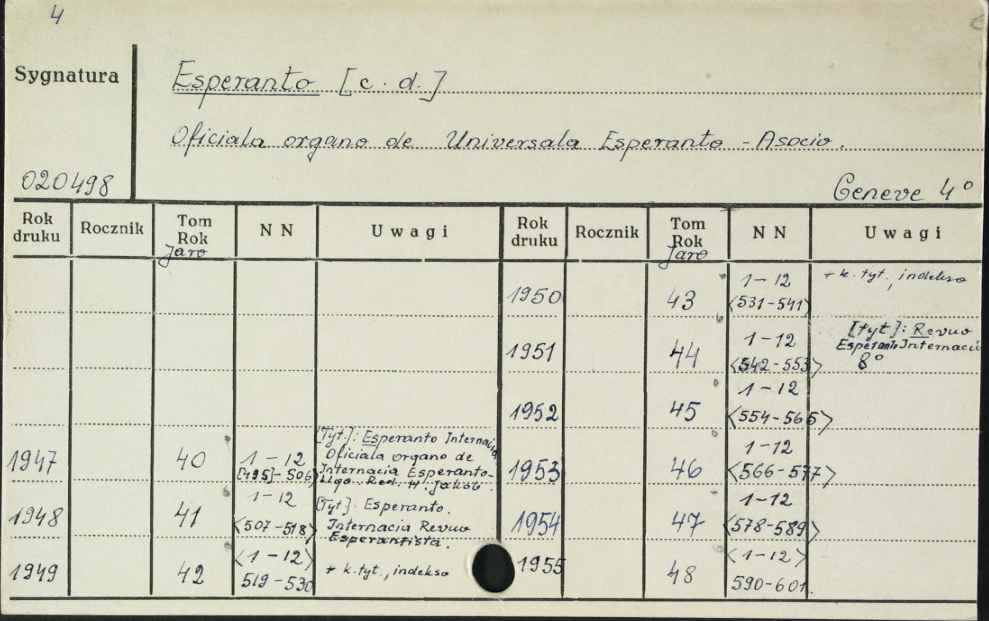 4
Sygnatura
Esperanto [c. d.]
Oficiala organo de Universala Esperanto - Asocio.
020498
Geneve 4°
Rok druku Rocznik Tom Rok Jaro NN Uwagi Rok druku Rocznik Tom Rok Jaro NN Uwagi
1950 43 1-12 <531-541> + k. tyt., indekso
1951 44 1-12 <542-553> [tyt]: Revuo
Esperanto Internacia
8°
1952 45 1-12 <554-565>
1947 40 1-12 [495]-506> [Tyt.]: Esperanto Internacia
Oficiala organo de
Internacia Esperanto-
Ligo. Red. H. Jakob.
1953 46 1-12 <566-577>
1948 41 1-12 <507-518> [Tyt]. Esperanto.
Internacia Revuo
Esperantista.
1954 47 1-12 <578-589>
1949 42 <1-12> 519-530 + k. tyt., indekso
1955 48 <1-12> 590-601.